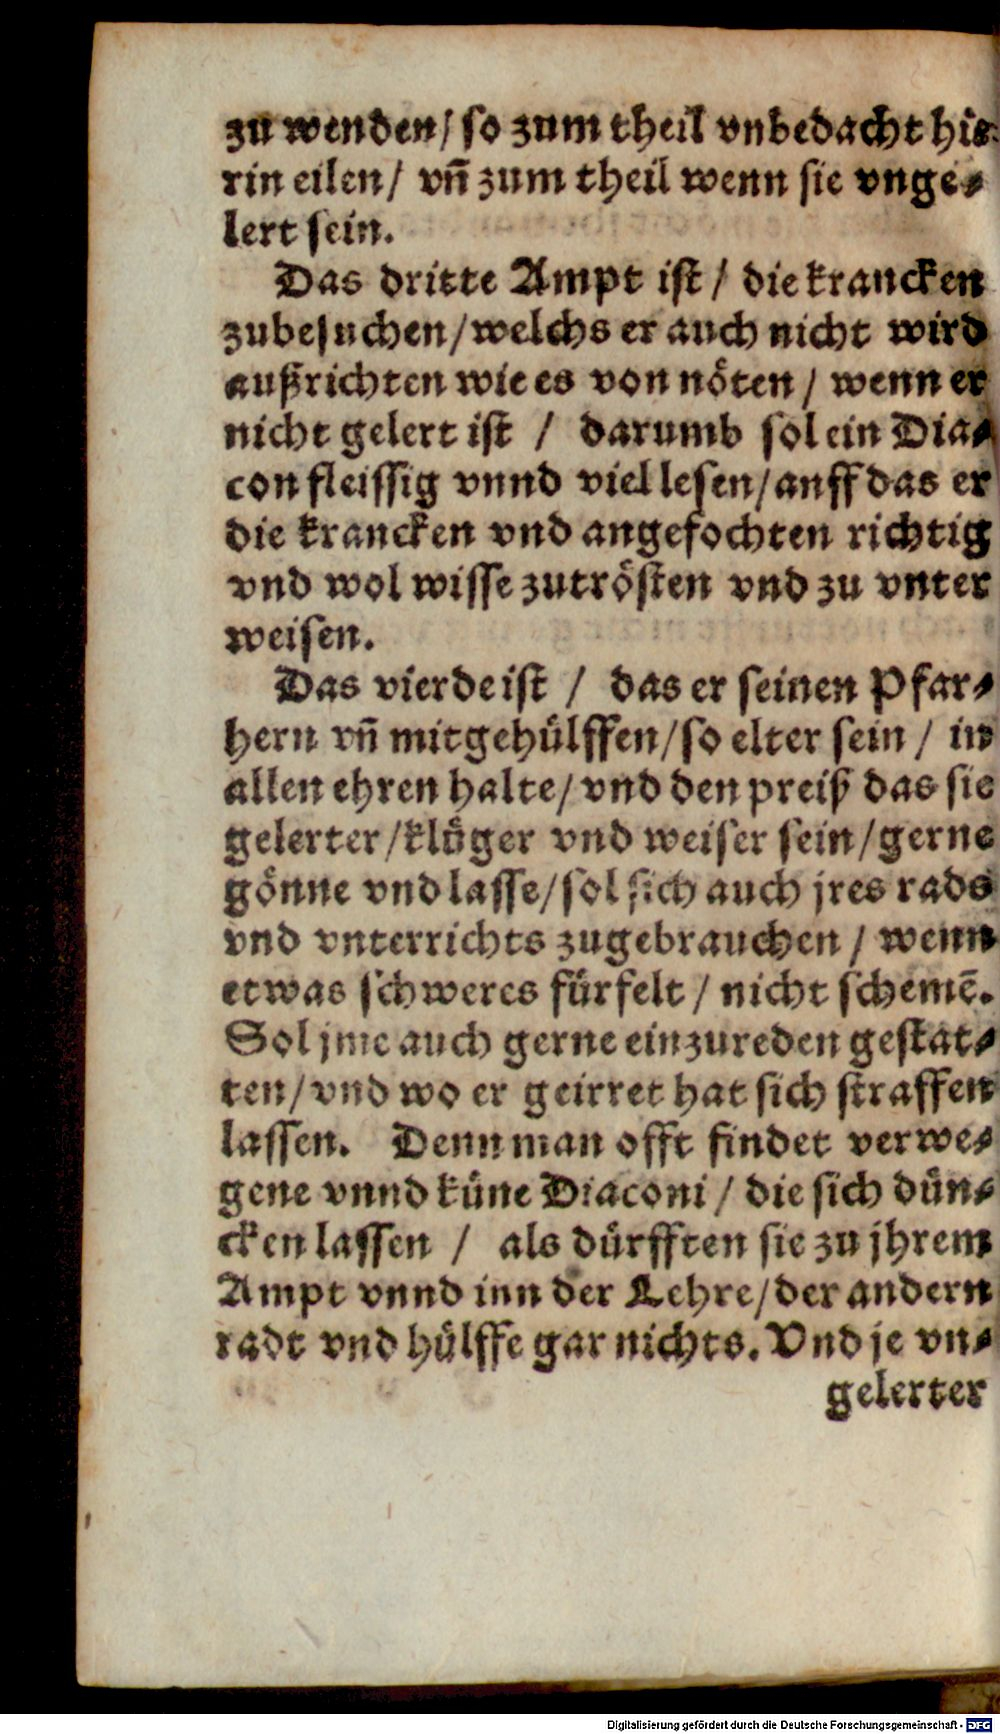 zu wenden / so zum theil vnbedacht hie-
rin eilen / vñ zum theil wenn sie vnge-
lert sein.
Das dritte Ampt ist / die krancken
zubesuchen / welchs er auch nicht wird
außrichten wie es von nöten / wenn er
nicht gelert ist / darumb sol ein Dia-
con fleissig vnnd viel lesen / auff das er
die krancken vnd angefochten richtig
vnd wol wisse zutrösten vnd zu vnter
weisen.
Das vierde ist / das er seinen Pfar-
hern vñ mitgehülffen / so elter sein / in
allen ehren halte / vnd den preiß das sie
gelerter / klüger vnd weiser sein / gerne
gönne vnd lasse / sol sich auch jres rads
vnd vnterrichts zugebrauchen / wenn
etwas schweres fürfelt / nicht schemẽ.
Sol jme auch gerne einzureden gestat-
ten / vnd wo er geirret hat sich straffen
lassen. Denn man offt findet verwe-
gene vnnd küne Diaconi / die sich dün-
cken lassen / als dürfften sie zu jhrem
Ampt vnnd inn der Lehre / der andern
radt vnd hülffe gar nichts. Vnd je vn-
gelerter
Digitalisierung gefördert durch die Deutsche Forschungsgemeinschaft - DFG